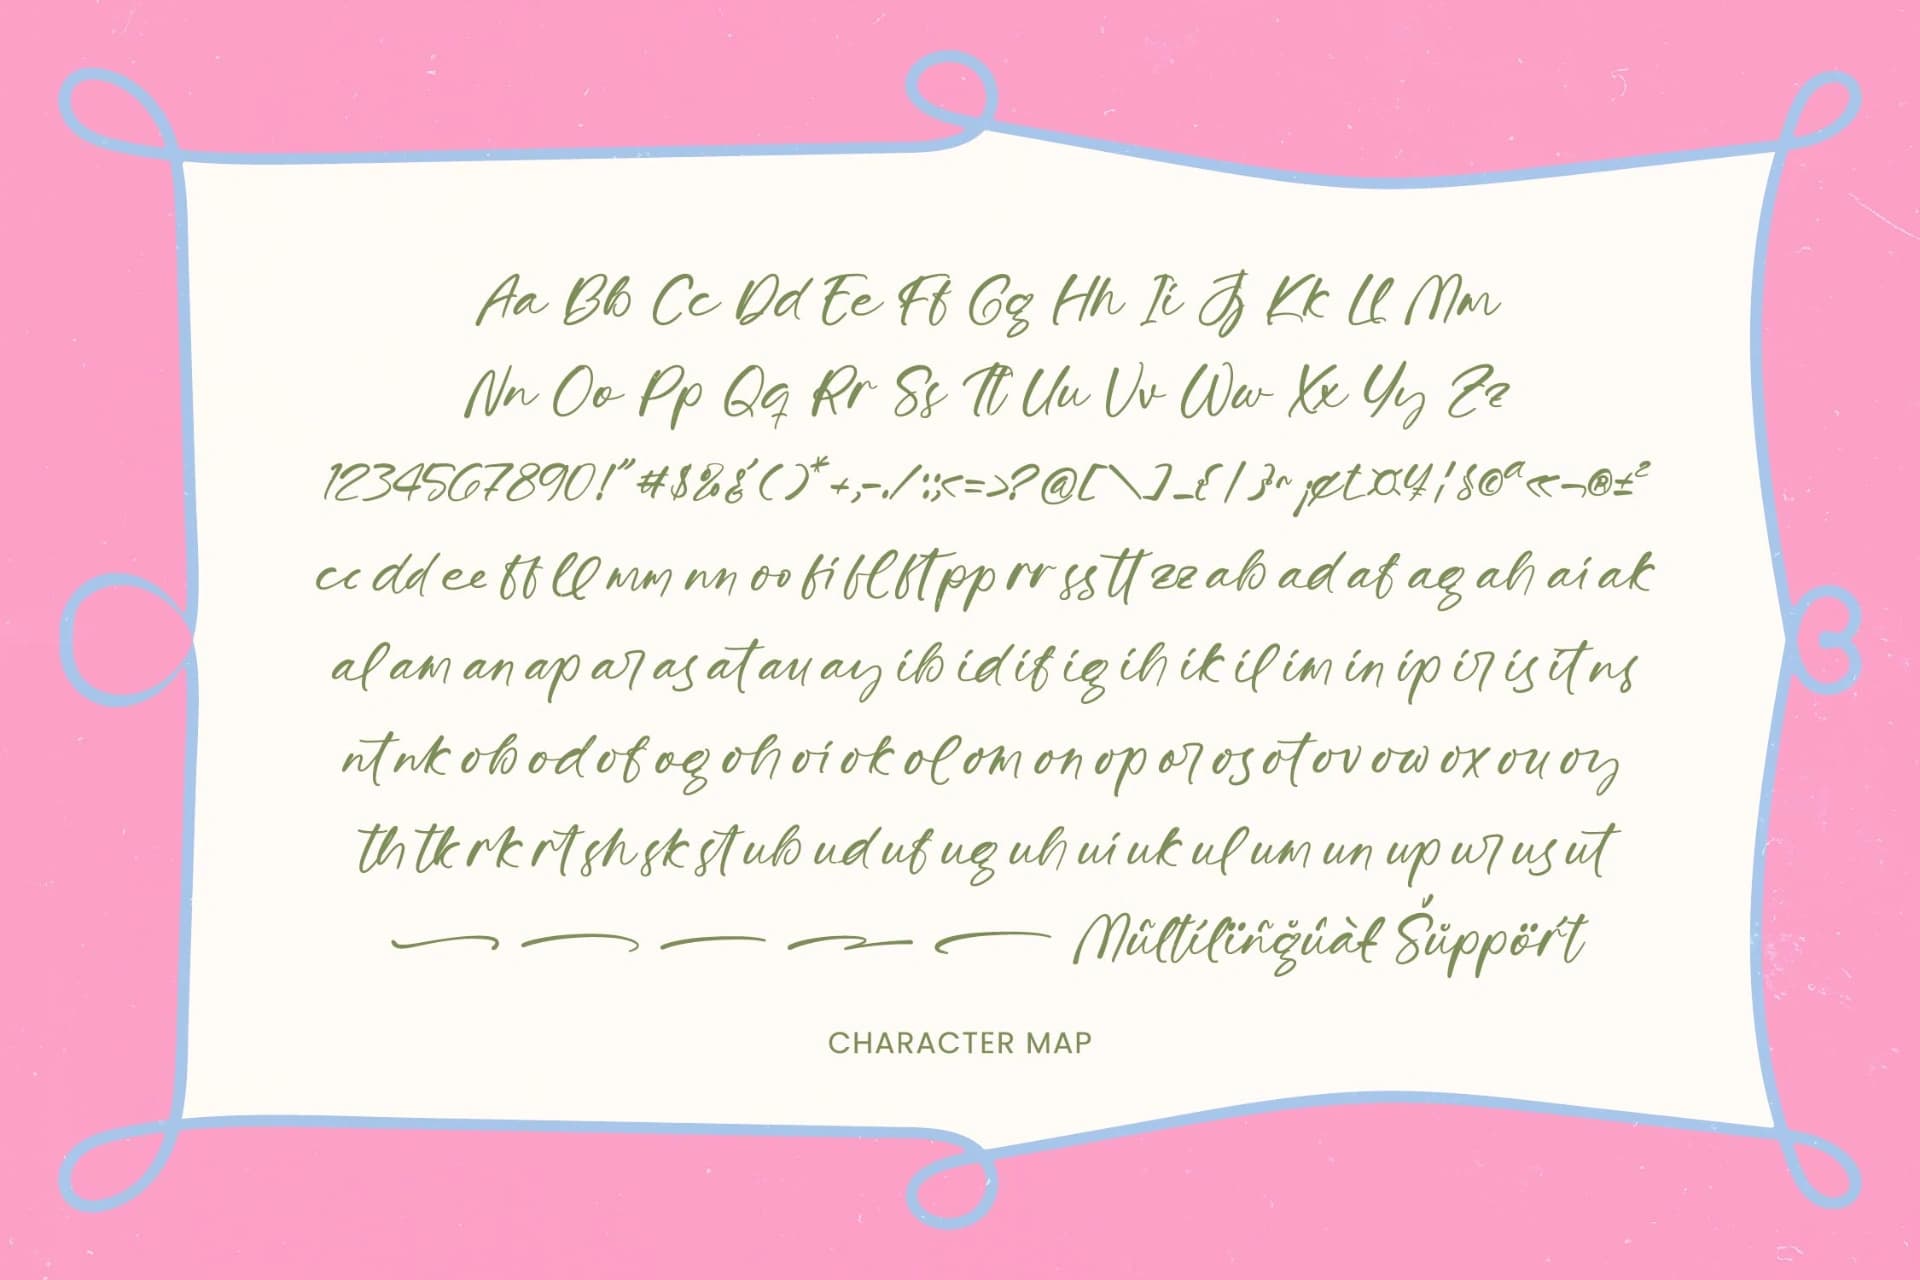 Aa Bb Cc Dd Ee Ff Gg Hh Ii Jj Kk Ll Mm
Nn Oo Pp Qq Rr Ss Tt Uu Vv Ww Xx Yy Zz
1234567890!"#$%&'()*+,-./:;<=>?@[\]_{|}~¡¢£¤¥¦§©ª«¬®±²
cc dd ee ff ll mm nn oo fi fl ft pp rr ss tt zz ab ad af ag ah ai ak
al am an ap ar as at au ay ib id if ig ih ik il im in ip ir is it ns
nt nk ob od of og oh oi ok ol om on op or os ot ov ow ox ou oy
th tk rk rt sh sk st ub ud uf ug uh ui uk ul um un up ur us ut
Mûltílïñğûàł Šŭppört
CHARACTER MAP